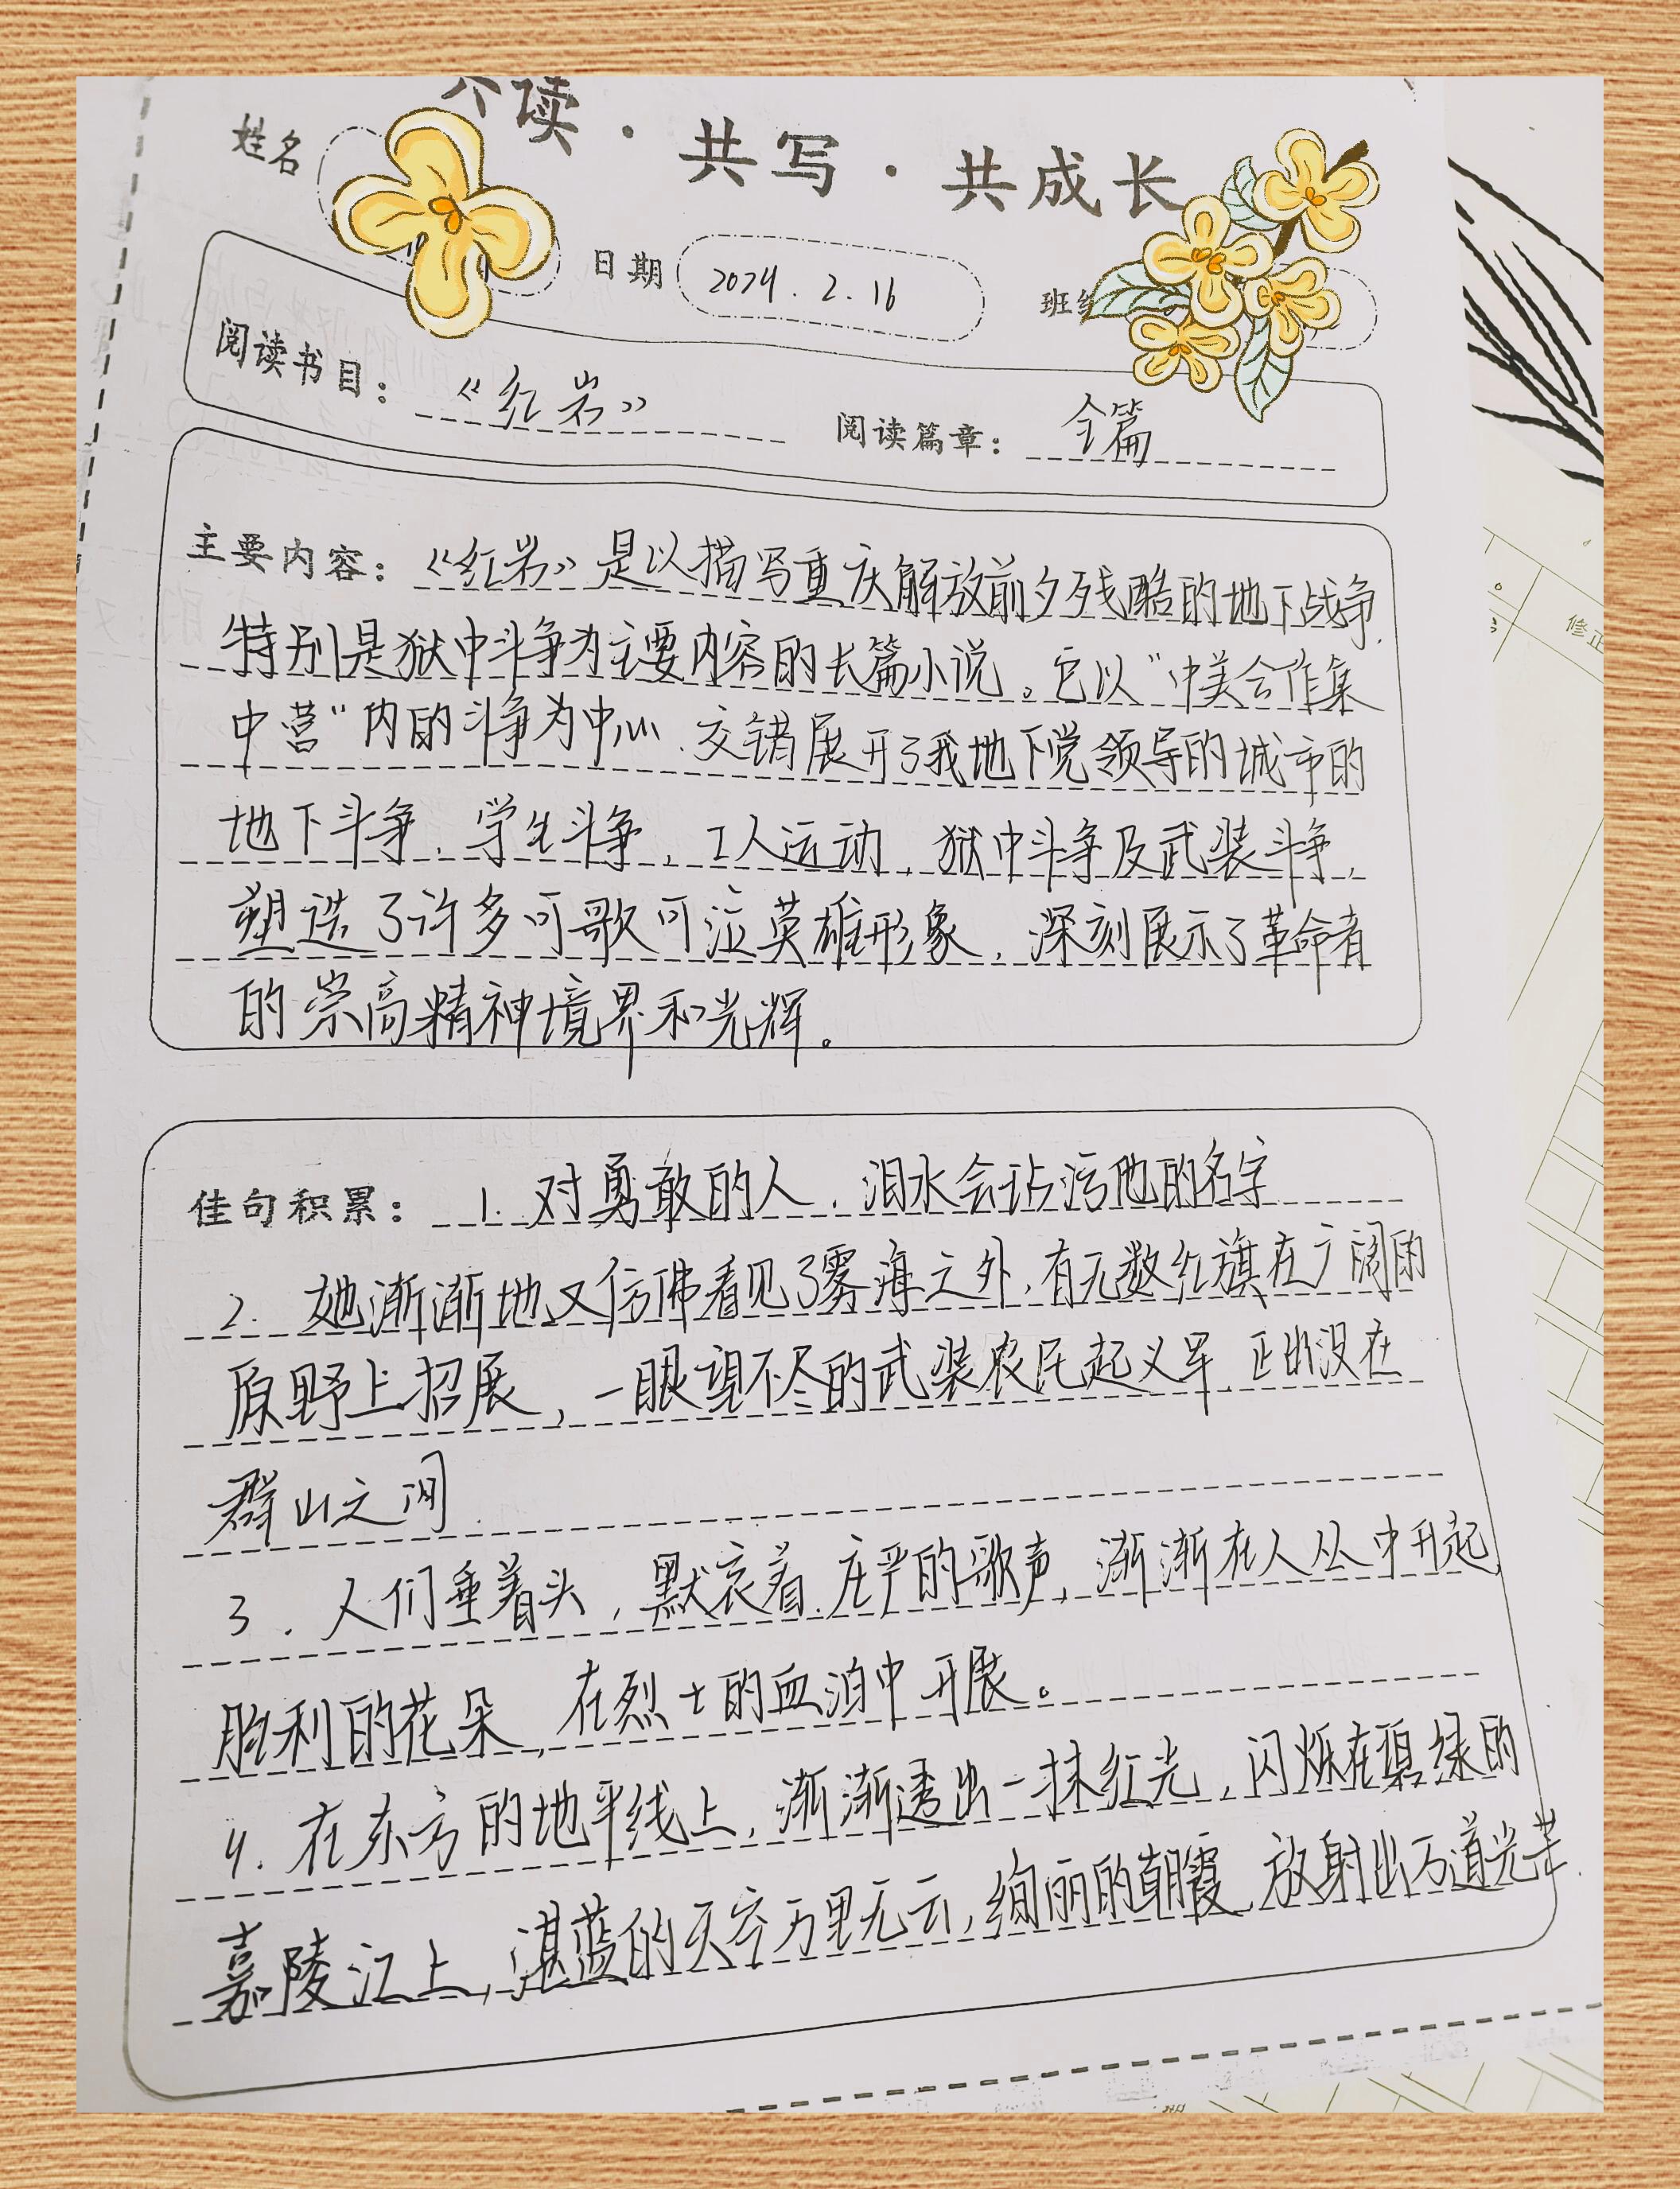 共读·共写·共成长
姓名
日期 2024.2.16
阅读书目：《红岩》 阅读篇章：全篇
主要内容：《红岩》是以描写重庆解放前夕残酷的地下战争，
特别是狱中斗争为主要内容的长篇小说。它以“中美合作集
中营”内的斗争为中心，交错展开了我地下党领导的城市的
地下斗争，学生斗争，工人运动，狱中斗争及武装斗争，
塑造了许多可歌可泣英雄形象，深刻展示了革命者
的崇高精神境界和光辉。
佳句积累：1. 对勇敢的人，泪水会玷污他的名字
2. 她渐渐地又仿佛看见了雾海之外，有无数红旗在广阔的
原野上招展，一眼望不尽的武装农民起义军，正出没在
群山之间.
3. 人们垂着头，默哀着，庄严的歌声，渐渐在人丛中升起，
胜利的花朵，在烈士的血泊中开展。
4. 在东方的地平线上，渐渐透出一抹红光，闪烁在碧绿的
嘉陵江上，湛蓝的天空万里无云，绚丽的朝霞，放射出万道光芒.
修正